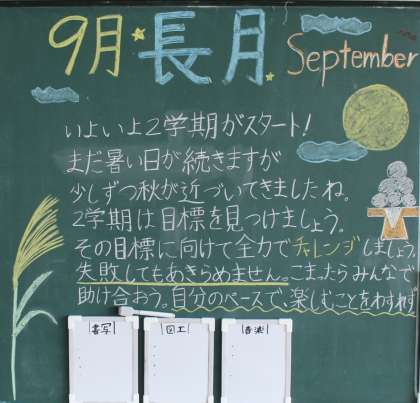 9月★長月 September
いよいよ2学期がスタート!
まだ暑い日が続きますが
少しずつ秋が近づいてきましたね。
2学期は目標を見つけましょう。
その目標に向けて全力でチャレンジしましょう。
失敗してもあきらめません。こまったらみんなで
助け合おう。自分のペースで、楽しむことをわすれず
書写 図工 音楽